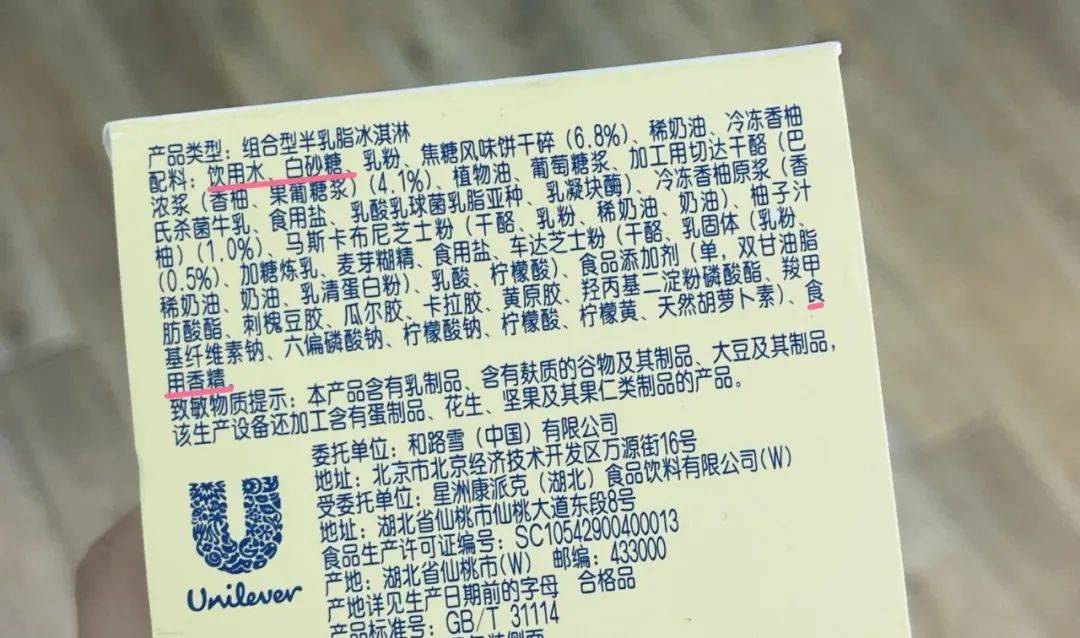 产品类型：组合型半乳脂冰淇淋
配料：饮用水、白砂糖、乳粉、焦糖风味饼干碎（6.8%）、稀奶油、冷冻香柚
浓浆（香柚、果葡糖浆）（4.1%）、植物油、葡萄糖浆、加工用切达干酪（巴
氏杀菌牛乳、食用盐、乳酸乳球菌乳脂亚种、乳凝块酶）、冷冻香柚原浆（香
柚）（1.0%）、马斯卡布尼芝士粉（干酪、乳粉、稀奶油、奶油）、柚子汁
（0.5%）、加糖炼乳、麦芽糊精、食用盐、车达芝士粉（干酪、乳固体（乳粉、
稀奶油、奶油、乳清蛋白粉）、乳酸、柠檬酸）、食品添加剂（单，双甘油脂
肪酸酯、刺槐豆胶、瓜尔胶、卡拉胶、黄原胶、羟丙基二淀粉磷酸酯、羧甲
基纤维素钠、六偏磷酸钠、柠檬酸钠、柠檬酸、柠檬黄、天然胡萝卜素）、食
用香精
致敏物质提示：本产品含有乳制品、含有麸质的谷物及其制品、大豆及其制品，
该生产设备还加工含有蛋制品、花生、坚果及其果仁类制品的产品。
委托单位：和路雪（中国）有限公司
地址：北京市北京经济技术开发区万源街16号
受委托单位：星洲康派克（湖北）食品饮料有限公司(W)
地址：湖北省仙桃市仙桃大道东段8号
食品生产许可证编号：SC10542900400013
产地：湖北省仙桃市(W) 邮编：433000
产地详见生产日期前的字母 合格品
产品标准号：GB/T 31114
Unilever